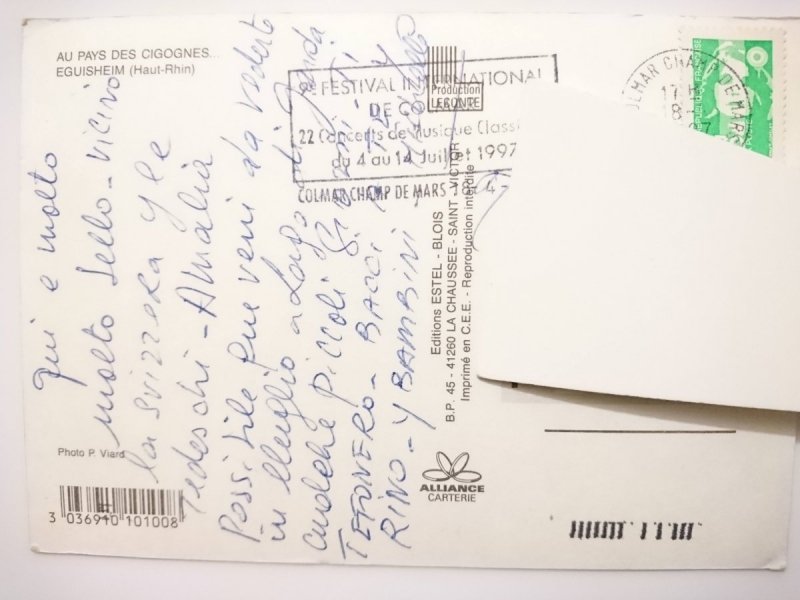 AU PAYS DES CIGOGNES...
EGUISHEIM (Haut-Rhin)
Qui e molto
molto bello - vicino
la svizzera y le
Tedeschi - Amalia
Possibile que veni da vederti
in lluglio a Largo di
anche Piccoli Gi
TEFONERO - BACCI
RINO - Y BAMBINI
Photo P. Viard
3 036910 101008
FESTIVAL INTERNATIONAL
DE CO
22 Concerts de Musique Class
du 4 au 14 Juillet 1997
COLMAR CHAMP DE MARS 18-4-
Production
LECONTE
Editions ESTEL - BLOIS
B.P. 45 - 41260 LA CHAUSSEE - SAINT - VICTOR
Imprimé en C.E.E. - Reproduction interdite
ALLIANCE
CARTERIE
OLMAR CHAMP DE MARS
17 H